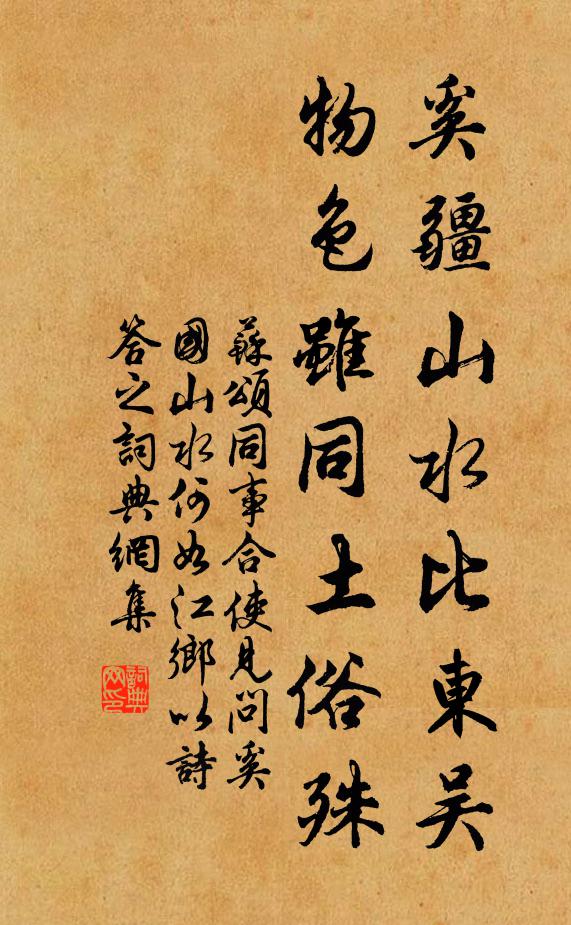 奚疆山水比東吴
物色雖同土俗殊
蘇頌同事合使見问奚
國山水何如江鄉以詩
答之詞典網集
詞典网印